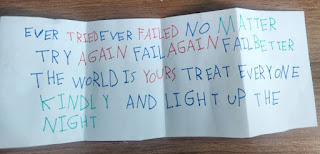 EVER TRIED EVER FAILED NO MATTER
TRY AGAIN FAIL AGAIN FAIL BETTER
THE WORLD IS YOURS TREAT EVERYONE
KINDLY AND LIGHT UP THE
NIGHT